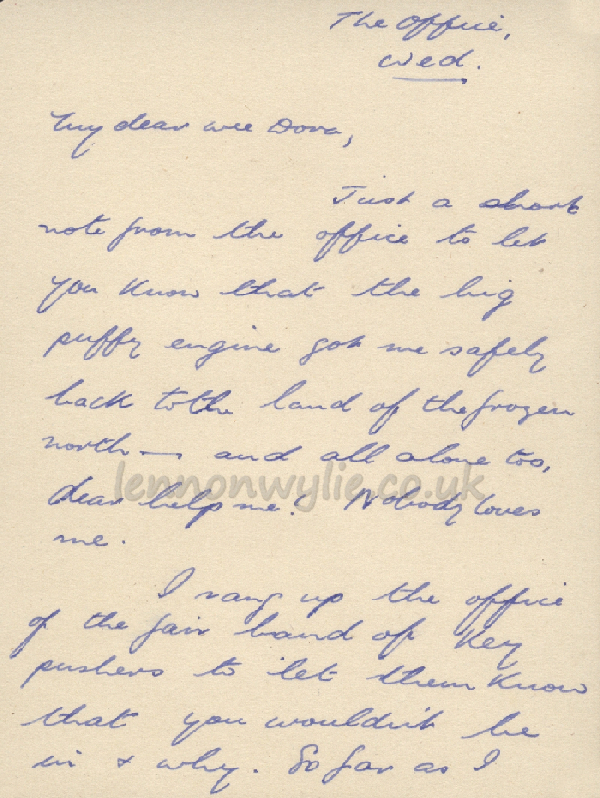 The Office,
Wed.
My dear wee Dora,
Just a short
note from the office to let
you know that the big
puffy engine got me safely
back to the land of the frozen
north — and all alone too,
lennonwylie.co.uk
dear help me! Nobody loves
me.
I rang up the office
of the fair band of key
pushers to let them know
that you wouldn't be
in & why. So far as I